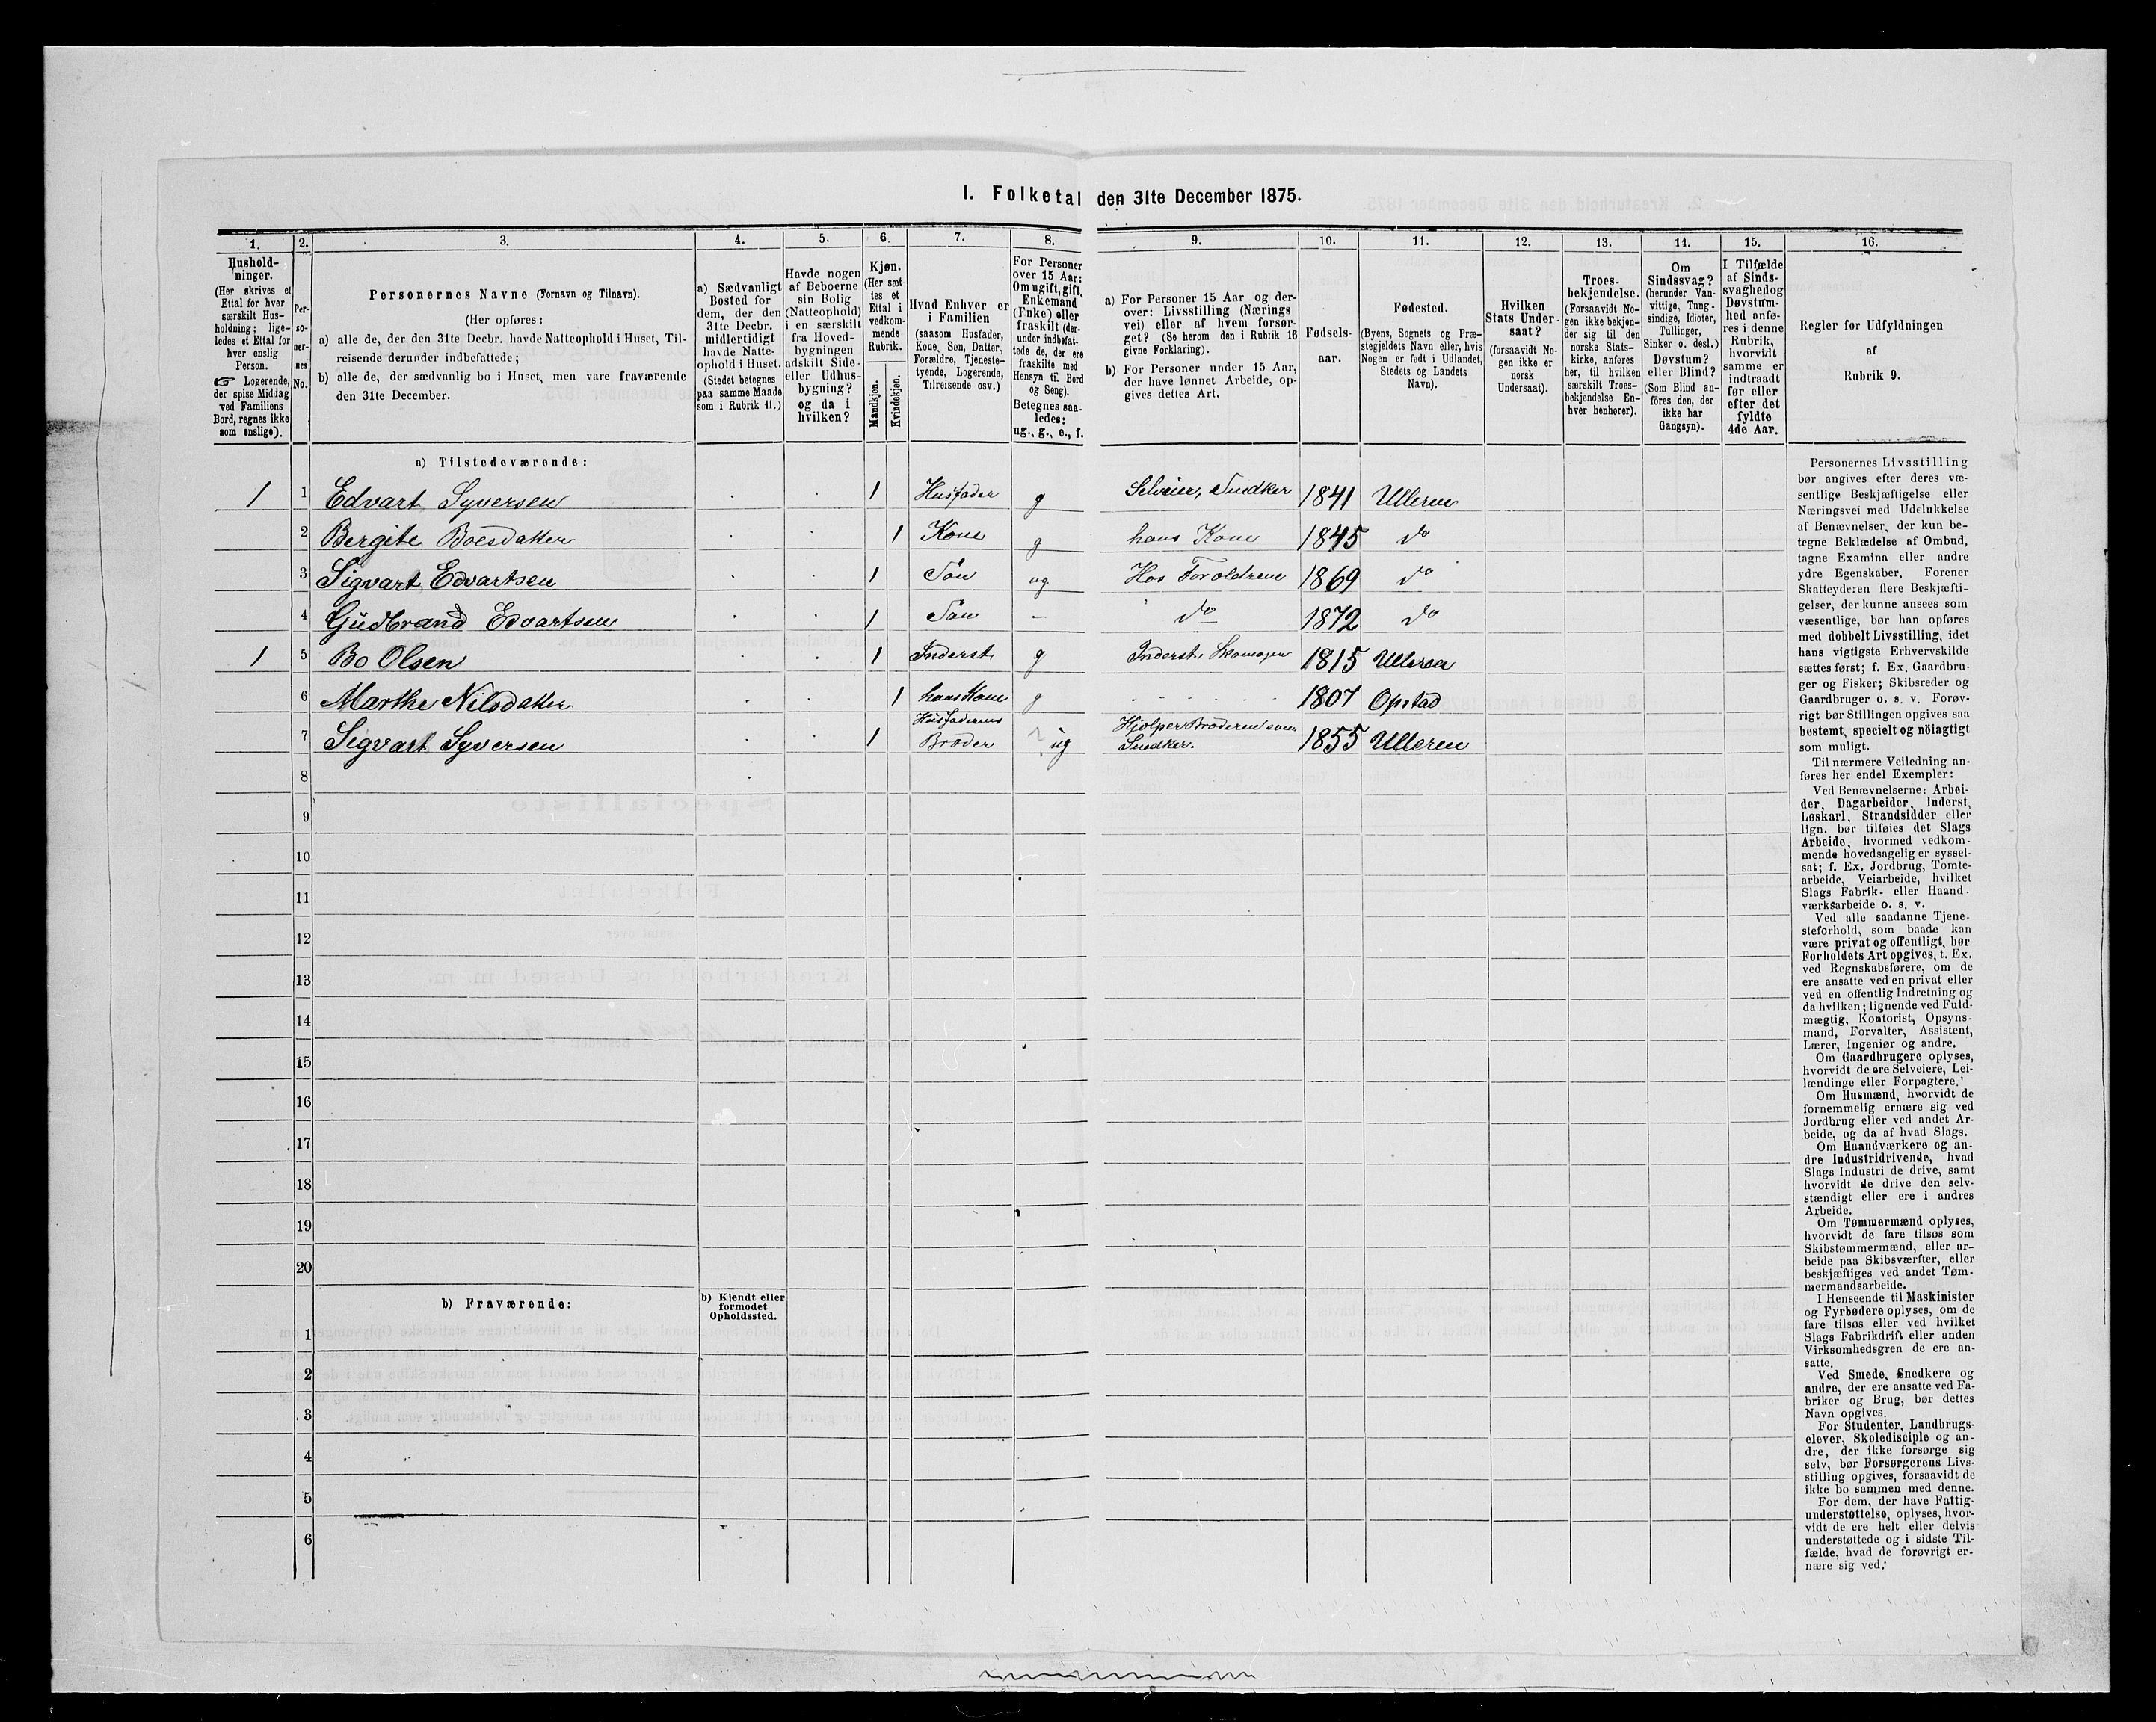 1. Folketal den 31te December 1875.
1. 2. 3. 4. 5. 6. 7. 8. 9. 10. 11. 12. 13. 14. 15. 16.
Hushold-
ninger.
(Her skrives et
Ettal for hver
særskilt Hus-
holdning; lige-
ledes et Ettal for
hver enslig
Person.
☞ Logerende,
der spise Middag
ved Familiens
Bord, regnes ikke
som enslige).
Per-
so-
ner-
nes
No.
Personernes Navne (Fornavn og Tilnavn).
(Her opføres:
a) alle de, der den 31te Decbr. havde Natteophold i Huset, Til-
reisende derunder indbefattede;
b) alle de, der sædvanlig bo i Huset, men vare fraværende
den 31te December.
a) Sædvanligt
Bosted for
dem, der den
31te Decbr.
midlertidigt
havde Natte-
ophold i Huset.
(Stedet betegnes
paa samme Maade
som i Rubrik 11.)
Havde nogen
af Beboerne
sin Bolig
(Natteophold)
i en særskilt
fra Hoved-
bygningen
adskilt Side-
eller Udhus-
bygning?
og da i
hvilken?
Kjøn.
(Her sæt-
tes et
Ettal i
vedkom-
mende
Rubrik.
Mandkjøn.
Kvindekjøn.
Hvad Enhver er
i Familien
(saasom Husfader,
Kone, Søn, Datter,
Forældre, Tjeneste-
tyende, Logerende,
Tilreisende osv.)
For Personer
over 15 Aar:
Om ugift, gift,
Enkemand
(Enke) eller
fraskilt (der-
under indbefat-
tede de, der ere
fraskilte med
Hensyn til Bord
og Seng).
Betegnes saa-
ledes:
ug., g., e., f.
a) For Personer 15 Aar og der-
over: Livsstilling (Nærings
vei) eller af hvem forsør-
get? (Se herom den i Rubrik 16
givne Forklaring).
b) For Personer under 15 Aar,
der have lønnet Arbeide, op-
gives dettes Art.
Fødsels-
aar.
Fødested.
(Byens, Sognets og Præ-
stegjeldets Navn eller, hvis
Nogen er født i Udlandet,
Stedets og Landets
Navn).
Hvilken
Stats Under-
saat?
(forsaavidt No-
gen ikke er
norsk
Undersaat).
Troes-
bekjendelse.
(Forsaavidt No-
gen ikke bekjen-
der sig til den
norske Stats-
kirke, anføres
her, til hvilken
særskilt Troes-
bekjendelse En-
hver henhører).
Om
Sindssvag?
(herunder Van-
vittige, Tung-
sindige, Idioter,
Tullinger,
Sinker o. desl.)
Døvstum?
eller Blind?
(Som Blind an-
føres den, der
ikke har
Gangsyn).
I Tilfælde
af Sinds-
svaghed og
Døvstum-
hed anfø-
res i denne
Rubrik,
hvorvidt
samme er
indtraadt
før eller
efter det
fyldte
4de Aar.
Regler for Udfyldningen
af
Rubrik 9.
a) Tilstedeværende:
1 1 Edvart Syversen 1 Husfader g Selveier, Snedker 1841 Ulleren
2 Bergite Boesdatter 1 Kone g hans Kone 1845 do
3 Sigvart Edvartsen 1 Søn ug Hos Forældrene 1869 do
4 Gudbrand Edvartsen 1 Søn – do 1872 do
1 5 Bo Olsen 1 Inderst g Inderst, Skomager 1815 Ulleren
6 Marthe Nilsdatter 1 hans Kone g 1807 Opstad
7 Sigvart Syversen 1 Husfaderens Broder ug Hjelper Broderen som Snedker. 1855 Ulleren
8
9
10
11
12
13
14
15
16
17
18
19
20
b) Fraværende:
b) Kjendt eller
formodet
Opholdssted.
1
2
3
4
5
6
Personernes Livsstilling
bør angives efter deres væ-
sentlige Beskjæftigelse eller
Næringsvei med Udelukkelse
af Benævnelser, der kun be-
tegne Beklædelse af Ombud,
tagne Examina eller andre
ydre Egenskaber. Forener
Skatteyderen flere Beskjæfti-
gelser, der kunne ansees som
væsentlige, bør han opføres
med dobbelt Livsstilling, idet
hans vigtigste Erhvervskilde
sættes først; f. Ex. Gaardbru-
ger og Fisker; Skibsreder og
Gaardbruger o. s. v. Forøv-
rigt bør Stillingen opgives saa
bestemt, specielt og nöiagtigt
som muligt.
Til nærmere Veiledning an-
føres her endel Exempler:
Ved Benævnelserne: Arbei-
der, Dagarbeider, Inderst,
Løskarl, Strandsidder eller
lign. bør tilføies det Slags
Arbeide, hvormed vedkom-
mende hovedsagelig er syssel-
sat; f. Ex. Jordbrug, Tomte-
arbeide, Veiarbeide, hvilket
Slags Fabrik- eller Haand-
værksarbeide o. s. v.
Ved alle saadanne Tjene-
steforhold, som baade kan
være privat og offentligt, bør
Forholdets Art opgives, t. Ex.
ved Regnskabsførere, om de
ere ansatte ved en privat eller
ved en offentlig Indretning og
da hvilken; lignende ved Fuld-
mægtig, Kontorist, Opsyns-
mand, Forvalter, Assistent,
Lærer, Ingeniør og andre.
Om Gaardbrugere oplyses,
hvorvidt de ere Selveiere, Lei-
lændinge eller Forpagtere.
Om Husmænd, hvorvidt de
fornemmelig ernære sig ved
Jordbrug eller ved andet Ar-
beide, og da af hvad Slags.
Om Haandværkere og an-
dre Industridrivende, hvad
Slags Industri de drive, samt
hvorvidt de drive den selv-
stændigt eller ere i andres
Arbeide.
Om Tømmermænd oplyses,
hvorvidt de fare tilsøs som
Skibstømmermænd, eller ar-
beide paa Skibsværfter, eller
beskjæftiges ved andet Tøm-
mermandsarbeide.
I Henseende til Maskinister
og Fyrbødere oplyses, om de
fare tilsøs eller ved hvilket
Slags Fabrikdrift eller anden
Virksomhedsgren de ere an-
satte.
Ved Smede, Snedkere og
andre, der ere ansatte ved Fa-
briker og Brug, bør dettes
Navn opgives.
For Studenter, Landbrugs-
elever, Skoledisciple og an-
dre, der ikke forsørge sig
selv, bør Forsørgerens Livs-
stilling opgives, forsaavidt de
ikke bo sammen med denne.
For dem, der have Fattig-
understøttelse, oplyses, hvor-
vidt de ere helt eller delvis
understøttede og i sidste Til-
fælde, hvad de forøvrigt er-
nære sig ved.